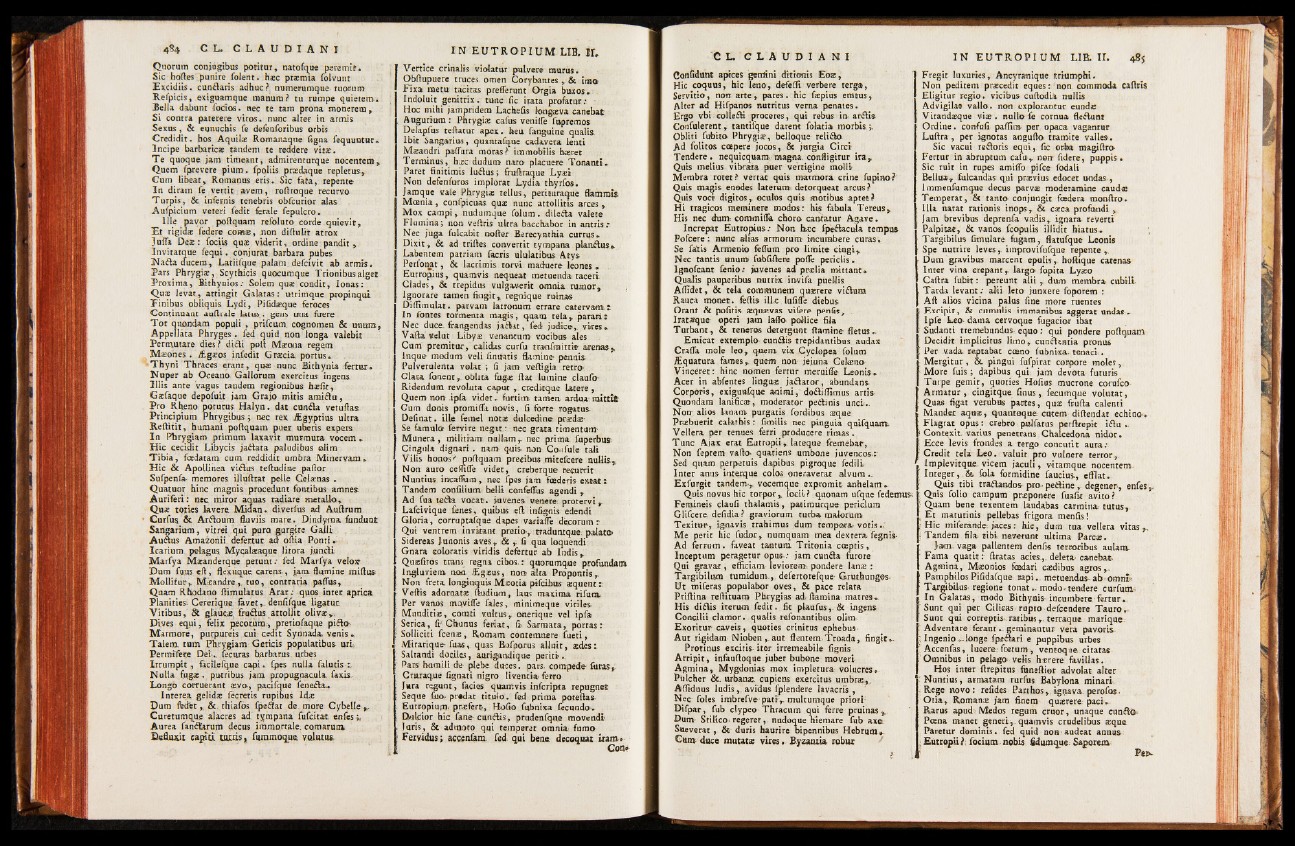 484 CL. CLAUDIANI
Quorum conjugibus potitur, natosque peremit.
Sic hostes punire solent. hæc præmia solvunt
Excidiis. cunctaris adhuc? numerumque tuorum
Respicis, exiguamque manum? tu rumpe quietem.
Bella dabunt socios. nec te tam prona monerem,
Si contra paterere viros. nunc alter in armis
Sexus, & eunuchis se defensoribus orbis
Credidit. hos Aquilæ Romanaque signa sequuntur.
Incipe barbaricæ tandem te reddere vitæ.
Te quoque jam timeant, admirenturque nocentem,
Quem sprevere pium. spoliis prædaque repletus,
Cum libeat, Romanus eris. Sic fata, repente
In diram se vertit avem, rostroque recurvo
Turpis, & infernis tenebris obscurior alas
Auspicium veteri sedit ferale sepulcro.
Ille pavor postquam resoluto corde quievit,
Et rigidæ sedere comæ, non distulit atrox
Jussa Deæ: sociis quæ viderit, ordine pandit,
Invitatque sequi. conjurat barbara pubes
Nacta ducem, Latiisque palam descivit ab armis.
Pars Phrygiæ, Scythicis quocumque Trionibus alget
Proxima, Bithynios: Solem quæ condit, Ionas:
Quæ levat, attingit Galatas: utrimque propinqui
Finibus obliquis Lydi, Pisidæque feroces
Continuant australe latus. gens una fuere
Tot quondam populi, priscum cognomen & unum,
Appellata Phryges. sed quid non longa valebit
Permutare dies? dicti post Mæona regem
Mæones. Ægæos insedit Græcia portus.
Thyni Thraces erant, quæ nunc Bithynia fertur.
Nuper ab Oceano Gallorum exercitus ingens
Illis ante vagus tandem regionibus hæsit,
Gæsaque deposuit jam Grajo mitis amictu,
Pro Rheno poturus Halyn. dat cuncta vetustas
Principium Phrygibus; nec rex Ægyptius ultra
Restitit, humani postquam puer uberis expers
In Phrygiam primum laxavit murmura vocem.
Hic cecidit Libycis jactata paludibus olim
Tibia, fœdatam cum reddidit umbra Minervam.
Hic & Apollinea victus testudine pastor
Suspensa memores illustrat pelle Celænas.
Quatuor hinc magnis procedunt fontibus amnes
Auriferi: nec miror aquas radiare metallo,
Quæ toties lavere Midan. diversus ad Austrum
Cursus & Arctoum fluviis mare. Dindyma fundunt
Sangarium, vitrei qui puro gurgite Galli
Auctus Amazonii defertur ad ostia Ponti.
Icarium pelagus Mycalæaque litora juncti
Marsya Mæanderque petunt: sed Marsya velox
Dum suus est, flexuque carens, jam flumine mistus
Mollitur, Mæandre, tuo, contraria passus,
Quam Rhodano stimulatus Arar: quos inter aprica
Planities Cererique favet, densisque ligatur
Vitibus, & glaucæ fructus attollit olivæ,
Dives equi, felix pecorum, pretiosaque picto
Marmore, purpureis cui cedit Synnada venis.
Talem tum Phrygiam Geticis populatibus uri
Permisere Dei. securas barbarus urbes
Irrumpit, facilesque capi. spes nulla salutis:
Nulla fugæ. putribus jam propugnacula saxis
Longo corruerant ævo, pacisque senecta.
Interea gelidæ secretis rupibus Idæ
Dum sedet, & thiasos spectat de more Cybelle,
Curetumque alacres ad tympana suscitat enses;
Aurea sanctarum decus immortale comarum
Defluxit capiti turris, summoque volutus
IN EUTROPIUM LIB. II.
Vertice crinalis violatur pulvere murus.
Obstupuere truces omen Corybantes, & imo
Fixa metu tacitas presserunt Orgia buxos.
Indoluit genitrix. tunc sic irata profatur:
Hoc mihi jampridem Lachesis longæva canebat
Augurium: Phrygiæ casus venisse supremos
Delapsus testatur apex. heu sanguine qualis
Ibit Sangarius, quantasque cadavera lenti
Mæandri passura moras! immobilis hæret
Terminus, hæc dudum nato placuere Tonanti.
Paret finitimis luctus; frustraque Lyæi
Non defensuros implorat Lydia thyrsos.
Jamque vale Phrygiæ tellus, perituraque flammis
Mœnia, conspicuas quæ nunc attollitis arces,
Mox campi, nudumque solum. dilecta valete
Flumina; non vestris ultra bacchabor in antris:
Nec juga sulcabit noster Berecynthia currus.
Dixit, & ad tristes convertit tympana planctus.
Labentem patriam sacris ululatibus Atys
Personat, & lacrimis torvi maduere leones.
Eutropius, quamvis nequeat metuenda taceri
Clades, & trepidus vulgaverit omnia rumor,
Ignorare tamen fingit, regnique ruinas
Dissimulat. parvam latronum errare catervam:
In sontes tormenta magis, quam tela, parari:
Nec duce frangendas jactat, sed judice, vires.
Vasta velut Libyæ venantum vocibus ales
Cum premitur, calidas cursu transmittit arenas,
Inque modum veli sinuatis flamine pennis
Pulverulenta volat; si jam vestigia retro
Clara sonent, oblita fugæ stat lumine clauso
Ridendum revoluta caput, creditque latere,
Quem non ipsa videt. furtim tamen ardua mittit
Cum donis promissa novis, si forte rogatus
Desinat. ille semel notæ dulcedine prædæ
Se famulo servire negat: nec grata timentum
Munera, militiam nullam, nec prima superbus
Cingula dignari. nam quis non Consule tali
Vilis honos? postquam precibus mitescere nullis,
Non auro cessisse videt, creberque recurrit
Nuntius incassum, nec spes jam fœderis exstat:
Tandem consilium belli confessus agendi,
Ad sua tecta vocat. juvenes venere protervi,
Lascivique senes, quibus est insignis edendi
Gloria, corruptasque dapes variasse decorum:
Qui ventrem invitant pretio, traduntque palato
Sidereas Junonis aves, &, si qua loquendi
Gnara coloratis viridis defertur ab Indis,
Quæsitos trans regna cibos: quorumque profundam
Ingluviem non Ægæus, non alta Propontis,
Non freta longinquis Mæotia piscibus æquent:
Vestis adornatæ studium, laus maxima risum
Per vanos movisse sales, minimeque viriles
Munditiæ, comti vultus, onerique vel ipsa
Serica, si Chunus feriat, si Sarmata, portas:
Solliciti scenæ, Romam contemnere sueti,
Mirarique suas, quas Bosporus alluit, ædes:
Saltandi dociles, aurigandique periti.
Pars humili de plebe duces. pars compede suras,
Cruraque signati nigro liventia ferro
Jura regunt, facies quamvis inscripta repugnet
Seque suo prodat titulo. sed prima potestas
Eutropium præfert, Hosio subnixa secundo.
Dulcior hic sane cunctis, prudensque movendi
Juris, & admoto qui temperat omnia fumo
Fervidus; accensam sed qui bene decoquat iram.
Con-
CL. CLAUDIANI
Considunt apices gemini ditionis Eoæ,
Hic coquus, hic leno, defessi verbere terga,
Servitio, non arte, pares. hic sæpius emtus,
Alter ad Hispanos nutritus verna penates.
Ergo ubi collecti proceres, qui rebus in arctis
Consulerent, tantisque darent solatia morbis;
Obliti subito Phrygiæ, belloque relicto
Ad solitos cœpere jocos, & jurgia Circi
Tendere. nequicquam magna confligitur ira,
Quis melius vibrata puer vertigine molli
Membra rotet? vertat quis marmora crine supino?
Quis magis enodes laterum detorqueat arcus?
Quis voci digitos, oculos quis motibus aptet?
Hi tragicos meminere modos: his fabula Tereus,
His nec dum commissa choro cantatur Agave.
Increpat Eutropius: Non hæc spectacula tempus
Poscere: nunc alias armorum incumbere curas.
Se satis Armenio fessum pro limite cingi,
Nec tantis unum subsistere posse periclis.
Ignoscant senio: juvenes ad prœlia mittant.
Qualis pauperibus nutrix invisa puellis
Assidet, & tela communem quærere victum
Rauca monet. festis illæ lusisse diebus
Orant & positis æquævas visere pensis,
Iratæque operi jam lasso pollice fila
Turbant, & teneros detergunt stamine fletus.
Emicat extemplo cunctis trepidantibus audax
Crassa mole leo, quem vix Cyclopea solum
Æquatura fames, quem non jejuna Celæno
Vinceret: hinc nomen fertur meruisse Leonis.
Acer in absentes linguæ jactator, abundans
Corporis, exiguusque animi, doctissimus artis
Quondam lanificæ, moderator pectinis unci.
Non alios lanam purgatis sordibus æque
Præbuerit calathis: similis nec pinguia quisquam
Vellera per tenues ferri producere rimas.
Tunc Ajax erat Eutropii, lateque fremebat,
Non septem vasto quatiens umbone juvencos:
Sed quam perpetuis dapibus pigroque sedili
Inter anus interque colos oneraverat alvum.
Exsurgit tandem, vocemque expromit anhelam.
Quis novus hic torpor, socii? quonam usque sedemus
Femineis clausi thalamis, patimurque periclum
Gliscere desidia? graviorum turba malorum
Texitur, ignavis trahimus dum tempora votis.
Me petit hic sudor, numquam mea dextera segnis
Ad ferrum. faveat tantum Tritonia cœptis,
Inceptum peragetur opus: jam cuncta furore
Qui gravat, efficiam leviorem pondere lanæ:
Targibilum tumidum, desertoresque Gruthungos
Ut miseras populabor oves, & pace relata
Pristina restituam Phrygias ad stamina matres.
His dictis iterum sedit. fit plausus, & ingens
Concilii clamor. qualis resonantibus olim
Exoritur caveis, quoties crinitus ephebus
Aut rigidam Nioben, aut flentem Troada, fingit.
Protinus excitis iter irremeabile signis
Arripit, infaustoque jubet bubone moveri
Agmina, Mygdonias mox impletura volucres.
Pulcher & urbanæ cupiens exercitus umbræ,
Assiduus ludis, avidus splendere lavacris,
Nec soles imbresve pati, multumque priori
Dispar, sub clypeo Thracum qui ferre pruinas,
Dum Stilico regeret, nudoque hiemare sub axe
Sueverat, & duris haurire bipennibus Hebrum.
Cum duce mutatæ vires. Byzantia robur
IN EUTROPIUM LIB. II. 485
Fregit luxuries, Ancyranique triumphi.
Non peditem præcedit eques: non commoda castris
Eligitur regio. vicibus custodia nullis
Advigilat vallo. non explorantur eundæ
Vitandæque viæ. nullo se cornua flectunt
Ordine. confusi passim per opaca vagantur
Lustra, per ignotas angusto tramite valles.
Sic vacui rectoris equi, sic orba magistro
Fertur in abruptum casu, non sidere, puppis.
Sic ruit in rupes amisso pisce sodali
Bellua, sulcandas qui prævius edocet undas,
Immensumque decus parvæ moderamine caudæ
Temperat, & tanto conjungit fœdera monstro.
Illa natat rationis inops, & cæca profundi,
Jam brevibus deprensa vadis, ignara reverti
Palpitat, & vanos scopulis illidit hiatus.
Targibilus simulare fugam, flatusque Leonis
Spe nutrire leves, improvisusque repente,
Dum gravibus marcent epulis, hostique catenas
Inter vina crepant, largo sopita Lyæo
Castra subit: pereunt alii, dum membra cubili
Tarda levant: alii leto junxere soporem:
Ast alios vicina palus sine more ruentes
Excipit, & cumulis immanibus aggerat undas.
Ipse Leo dama cervoque fugacior ibat
Sudanti tremebundus equo: qui pondere postquam
Decidit implicitus limo, cunctantia pronus
Per vada reptabat cœno subnixa tenaci.
Mergitur, & pingui suspirat corpore moles,
More suis; dapibus qui jam devota futuris
Turpe gemit, quoties Hosius mucrone corusco
Armatur, cingitque sinus, secumque volutat,
Quas figat verubus partes, quæ frusta calenti
Mandet aquæ, quantoque cutem distendat echino.
Flagrat opus: crebro pulsatus perstrepit ictu
Contexit varius penetrans Chalcedona nidor.
Ecce levis frondes a tergo concutit aura:
Credit tela Leo. valuit pro vulnere terror,
Implevitque vicem jaculi, vitamque nocentem
Integer, & sola formidine saucius, efflat.
Quis tibi tractandos pro pectine, degener, enses,
Quis solio campum præponere suasit avito?
Quam bene texentem laudabas carmina tutus,
Et matutinis pellebas frigora mensis!
Hic miserande jaces: hic, dum tua vellera vitas,
Tandem fila tibi neverunt ultima Parcæ.
Jam vaga pallentem densis terroribus aulam
Fama quatit: stratas acies, deleta canebat
Agmina, Mæonios fœdari cædibus agros,
Pamphilos Pisidasque rapi. metuendus ab omni
Targibilus regione tonat. modo tendere cursum
In Galatas, modo Bithynis incumbere fertur.
Sunt qui per Cilicas rupto descendere Tauro,
Sunt qui correptis ratibus, terraque marique
Adventare ferant. geminantur vera pavoris
Ingenio. longe spectari e puppibus urbes
Accensas, lucere fretum, ventoque citatas
Omnibus in pelago velis hærere favillas.
Hos inter strepitus funestior advolat alter
Nuntius, armatam rursus Babylona minari
Rege novo: resides Parthos, ignava perosos
Otia, Romanæ jam finem quærere paci.
Rarus apud Medos regum cruor, unaque cuncto
Pœna manet generi, quamvis crudelibus æque
Paretur dominis. sed quid non audeat annus
Eutropii? socium nobis fidumque Saporem
Per-